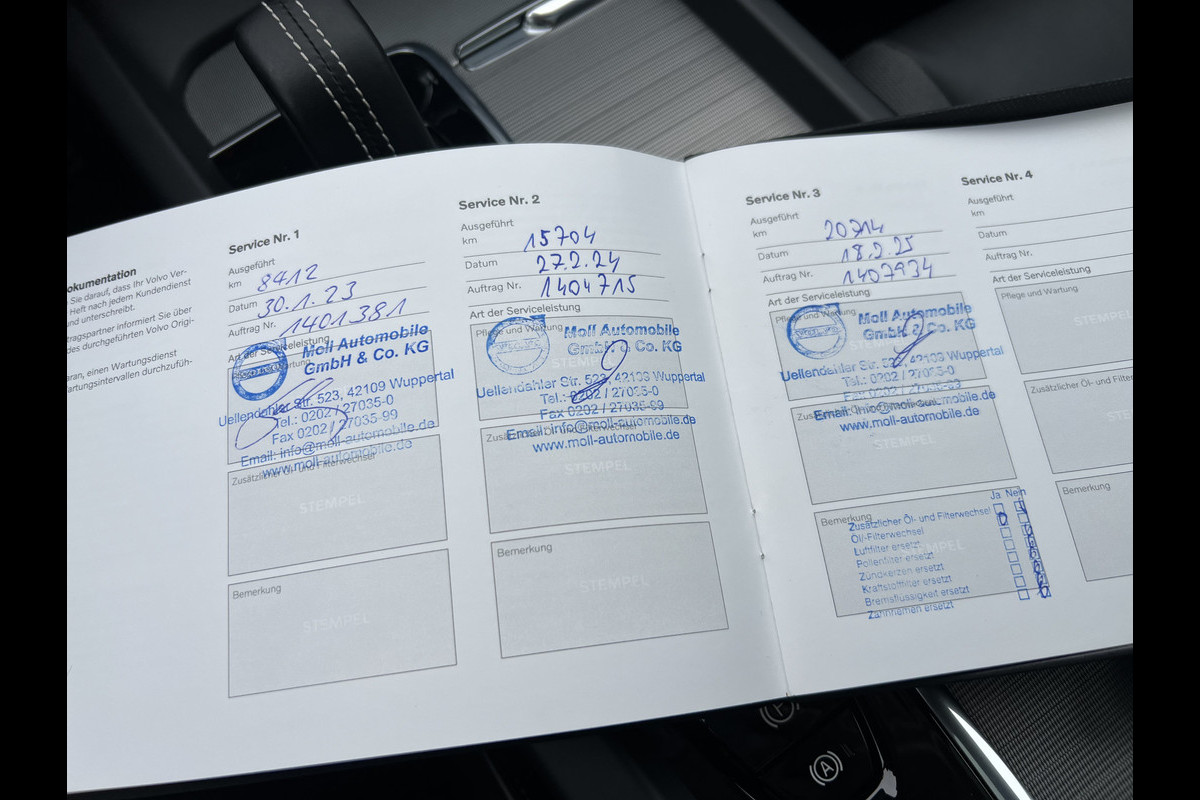 okumentation
Sie darauf, dass Ihr Volvo Ver-
Heft nach jedem Kundendienst
und unterschreibt.
tragspartner informiert Sie über
des durchgeführten Volvo Origi-
aran, einen Wartungsdienst
artungsintervallen durchzufüh-
Service Nr. 1
Ausgeführt
km 8412
Datum 30.1.23
Auftrag Nr. 1401381
Art der Serviceleistung
Moll Automobile
GmbH & Co. KG
Uellendahler Str. 523, 42109 Wuppertal
Tel.: 0202 / 27035-0
Fax 0202 / 27035-99
Email: info@moll-automobile.de
www.moll-automobile.de
Zusätzlicher Öl- und Filterwechsel
STEMPEL
Bemerkung
STEMPEL
Service Nr. 2
Ausgeführt
km 15704
Datum 27.2.24
Auftrag Nr. 1404715
Art der Serviceleistung
Pflege und Wartung
Moll Automobile
GmbH & Co. KG
Uellendahler Str. 523, 42109 Wuppertal
Tel.: 0202 / 27035-0
Fax 0202 / 27035-99
Email: info@moll-automobile.de
www.moll-automobile.de
STEMPEL
Bemerkung
STEMPEL
Service Nr. 3
Ausgeführt
km
Datum 18.2.25
Auftrag Nr. 1407934
Art der Serviceleistung
Pflege und Wartung
Moll Automobile
GmbH & Co. KG
Uellendahler Str. 523, 42109 Wuppertal
Tel.: 0202 / 27035-0
Fax 0202 / 27035-99
Email: info@moll-automobile.de
www.moll-automobile.de
STEMPEL
Bemerkung
Ja Nein
Zusätzlicher Öl- und Filterwechsel
Öl-/Filterwechsel
Luftfilter ersetzt
Pollenfilter ersetzt
Zündkerzen ersetzt
Kraftstofffilter ersetzt
Bremsflüssigkeit ersetzt
Zahnriemen ersetzt
Service Nr. 4
Ausgeführt
km
Datum
Auftrag Nr.
Art der Serviceleistung
Pflege und Wartung
STEMPEL
Zusätzlicher Öl- und Filter
STE
Bemerkung
(A)